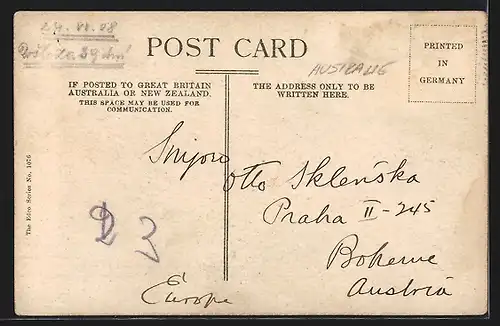 24.VI.08
POST CARD
AUSTRALIE
PRINTED
IN
GERMANY
IF POSTED TO GREAT BRITAIN
AUSTRALIA OR NEW ZEALAND.
THIS SPACE MAY BE USED FOR
COMMUNICATION.
THE ADDRESS ONLY TO BE
WRITTEN HERE.
The Edco Series No. 1056
Otto Sklenška
Praha II-245
Boheme
Austria
Europe